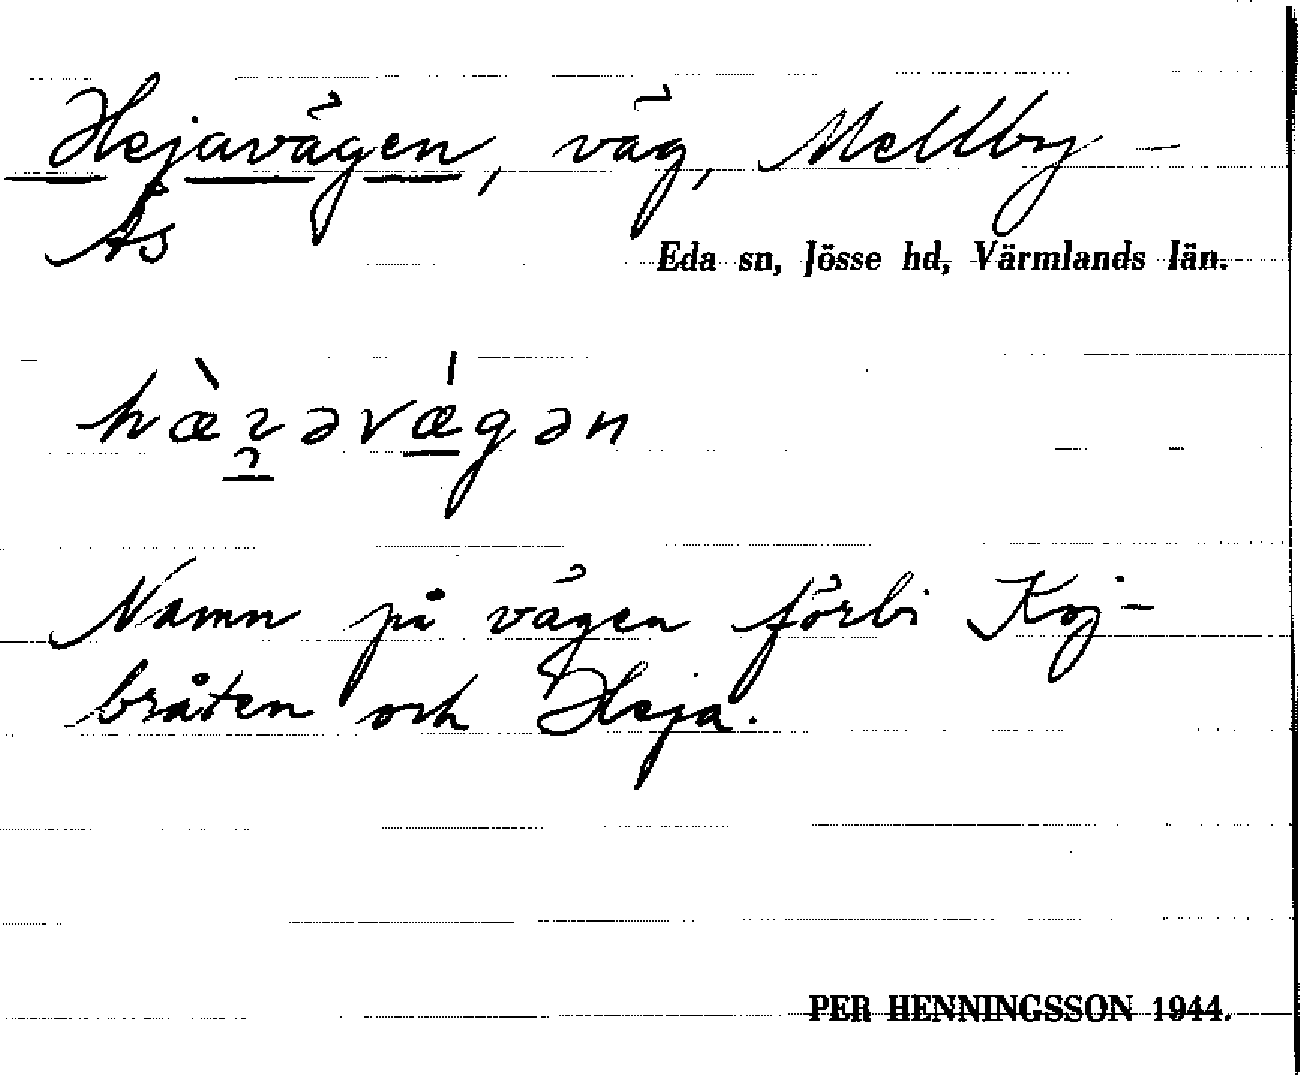 Hejavägen, väg, Mellby –
Ås
Eda sn, Jösse hd, Värmlands län.
Namn på vägen förbi Koj-
bråten och Heja.
PER HENNINGSSON 1944.